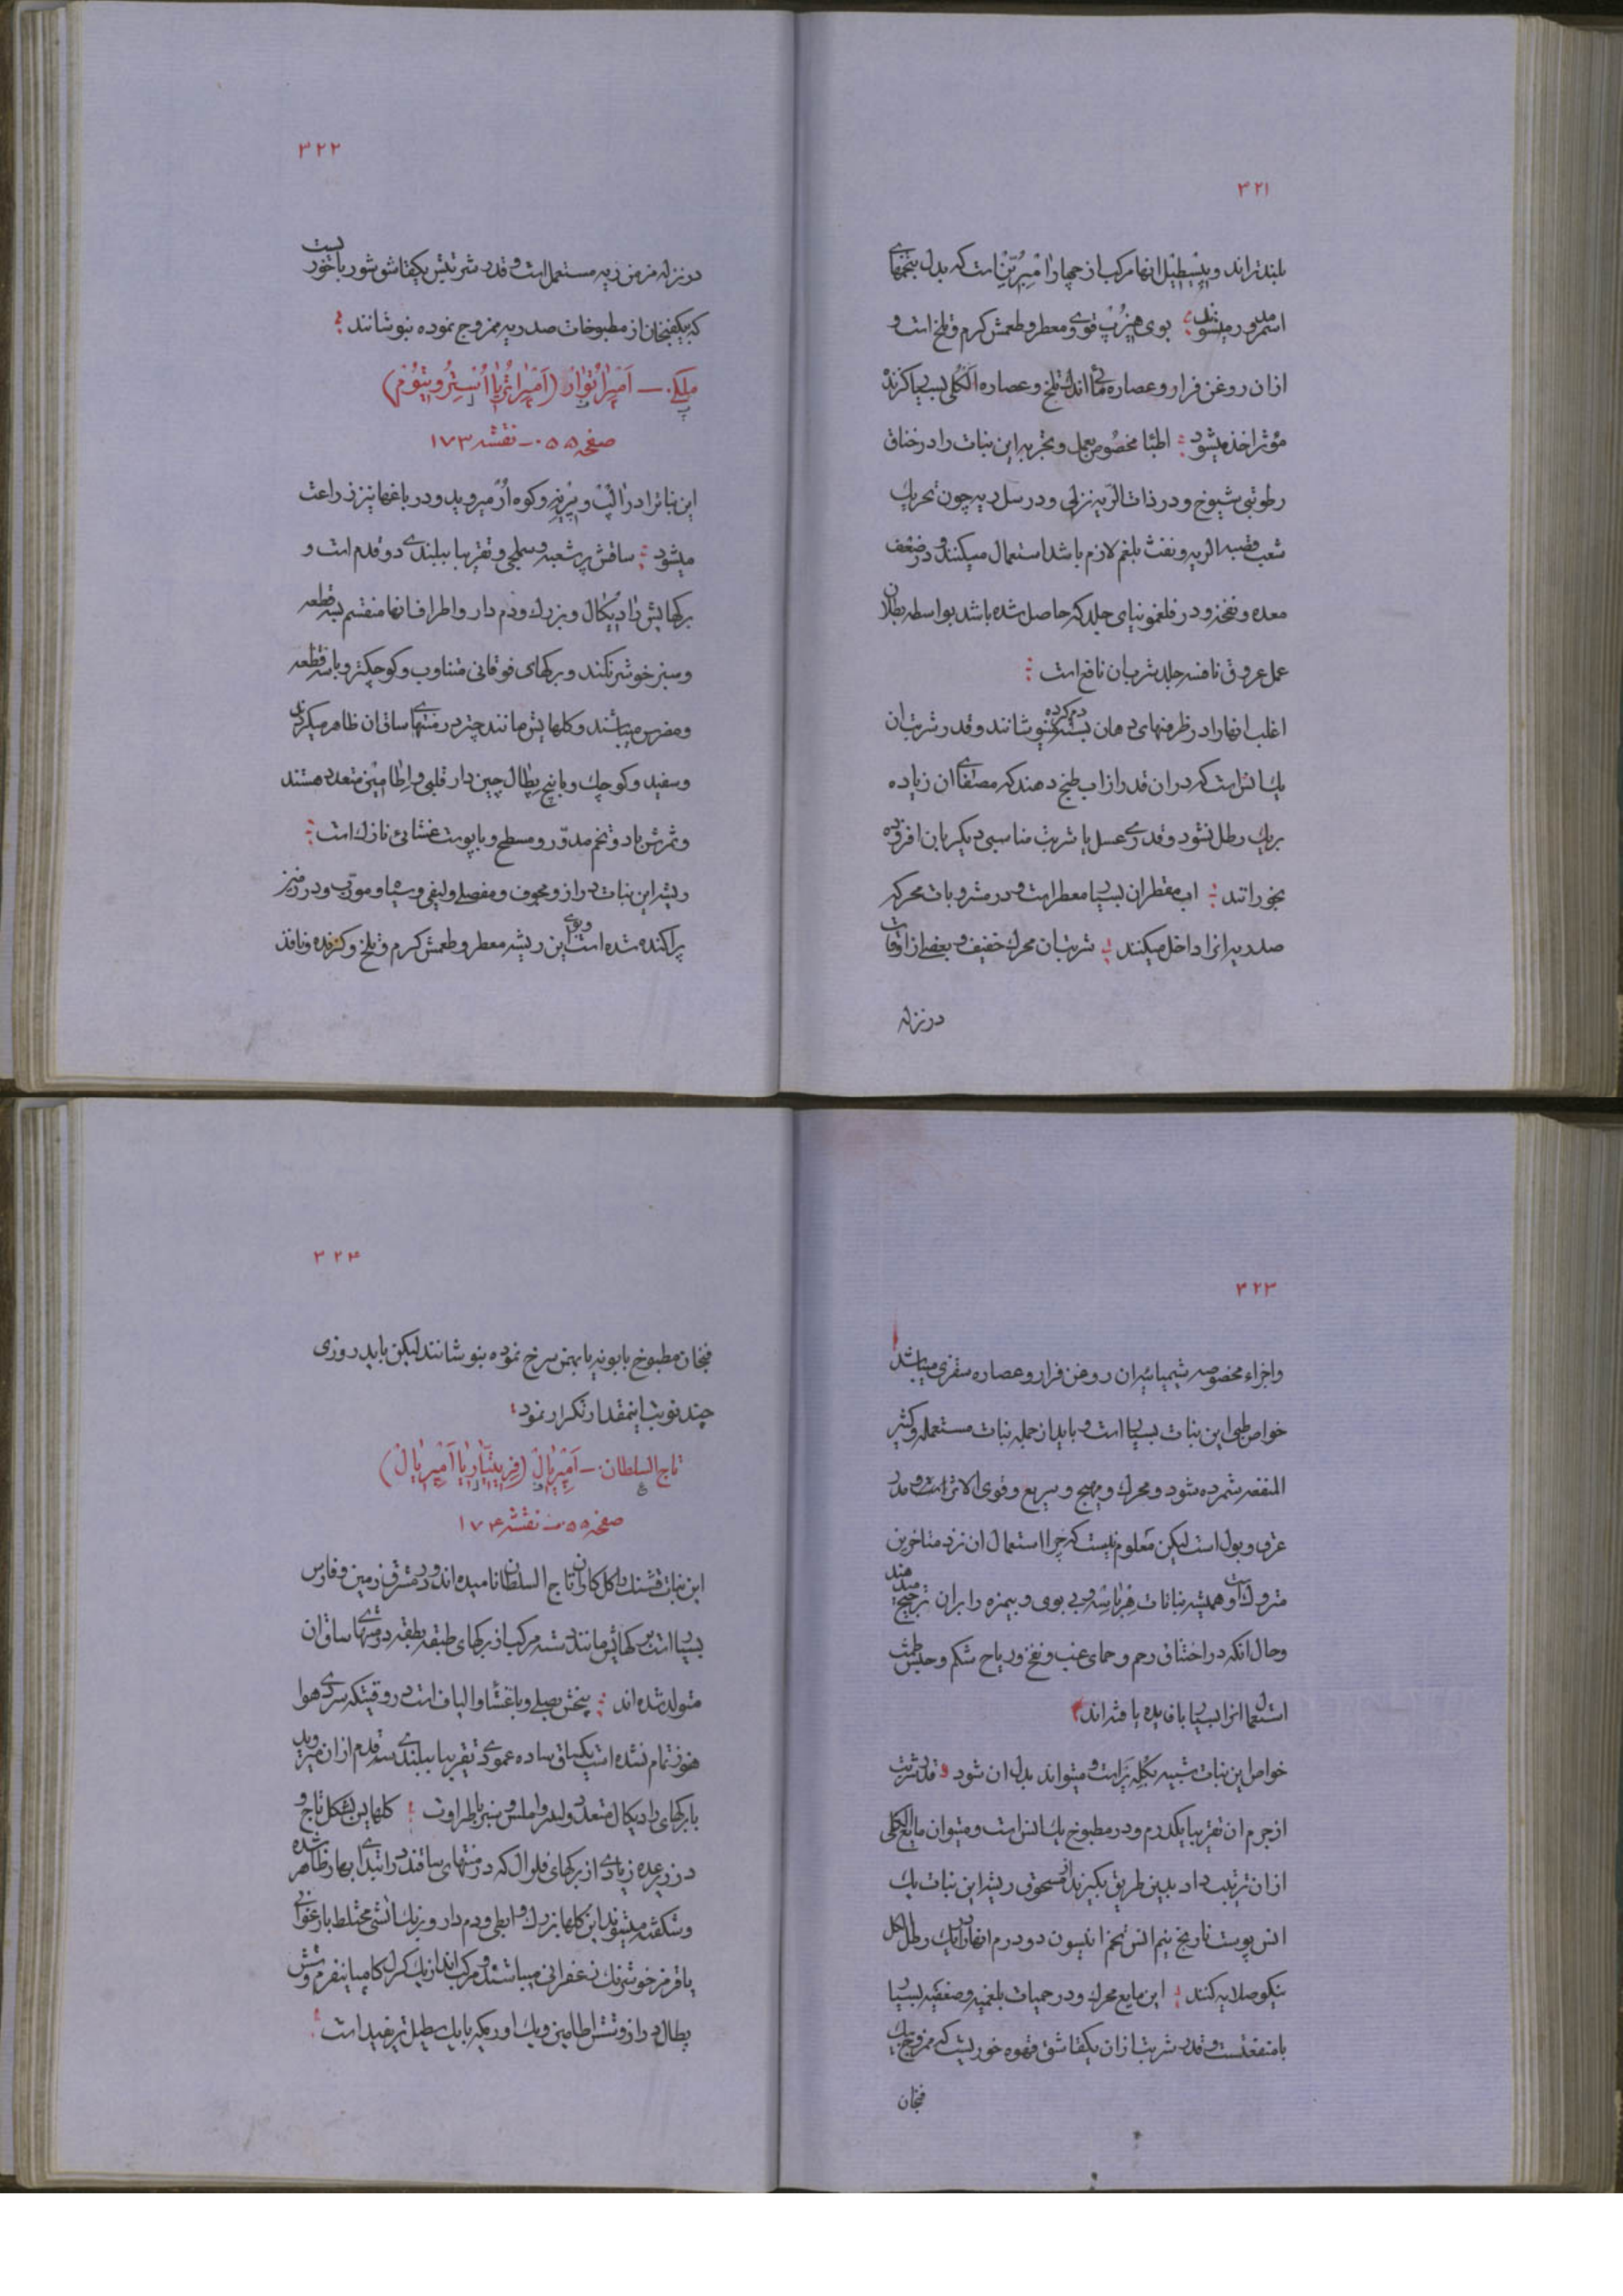 ۳۲۱
بلندتراند و پیسطیل انها مرکب از چهار امبرین است که بدل بتخمهای
مدور میشوند ؛ بوی هیزوپ قوی و معطر و طعمش کرم و تلخ است و
ازان روغن فرار و عصاره مائی اندک تلخ و عصاره الکلی بسیار کزنده
مؤثر اخذ میشود ؛ اطبا مخصوص بعمل و تجربه این نبات را در خناق
رطوبتی شیوخ و در ذات الریه نزلی و در سل ریه چون تحریک
شعب قصبه الریه و نفث بلغم لازم باشد استعمال میکنند و در ضعف
معده و نفخ و در فلغمونیای جلد که حاصل شده باشد بواسطه بطلان
عمل عروق نافسه جلد شربان نافع است ؛
اغلب انها را در ظرفهای دهان بسته دم کرده بنوشانند و قدر شربت ان
یک انس است که در ان قدر از اب طبخ دهند که مصفای ان زیاده
بریک رطل نشود و قدری عسل یا شربت مناسبی دیکر بان افزوده
بخورانند ؛ اب مقطران بسیار معطر است و در مشروبات محرکه
صدریه انرا داخل میکنند ؛ شربت ان محرک خفیف و بعضی از اوقات
در نزله
۳۲۲
در نزله مزمن ریه مستعمل است و قدر شربتش یکقاشق شورباخوریست
که بیکفنجان از مطبوخات صدریه ممزوج نموده بنوشانند ؛
ملکی. — امپراتوار (امپراتریا استروتیوم)
صفحه ۵۵۰ — نقشه ۱۷۳
این نبات را در الپ و پیرینه و کوه اوژ میروید و در باغها نیز زراعت
میشود ؛ ساقش پرشعبه و سطبر و تقریبا ببلندی دو قدم است و
برکهایش رادیکال و بزرک و دم دار و اطراف انها منقسم بسه قطعه
و سبز خوشرنکند و برکهای فوقانی متناوب و کوچکتر و با سه قطعه
و مضرس میباشند و کلهایش مانند چتر در منتهای ساق ان ظاهر میکردند
و سفید و کوچک و با پنج پطال چین دار قلبی و اطامین متعدد هستند
و ثمرش با دو تخم مدور و مسطح و با پوست غشائی نازک است ؛
ریشه این نبات دراز و مجوف و مفصلی و لیفی و سیاه و مورب و در زمین
پراکنده شده است و بوی این ریشه معطر و طعمش کرم و تلخ و کزنده و نافذ
۳۲۳
و اجزاء مخصوصه شیمیائیه ان روغن فرار و عصاره سقزی میباشد
خواص طبی این نبات بسیار است و باید از جمله نبات مستعمله و کثیر
المنفعه شمرده شود و محرک و مهیج و سریع و قوی الاثر است و مدر
عرق و بول است لیکن معلوم نیست که چرا استعمال ان نزد متاخرین
متروک است و همیشه نباتات هرباسه و بی بوی و بیمزه را بران ترجیح میدهند
و حال انکه در اختناق رحم و حمای غب و نفخ و ریاح شکم و حبس طمث
استعمال انرا بسیار با فایده یافته اند
خواص این نبات شبیه بکلپر است و میتواند بدل ان شود و قدر شربت
از جرم ان تقریبا یکدرم و در مطبوخ یک انس است و میتوان مایع الکلی
ازان ترتیب داد بدین طریق بکیرند از مسحوق ریشه این نبات یک
انس پوست نارنج نیم انس تخم انیسون دو درم انها را در یک رطل الکل
نیکو صلایه کنند ؛ این مایع محرک و در حمیات بلغمیه و صعبه بسیار
با منفعتست و قدر شربت ازان یکقاشق قهوه خوریست که ممزوج بیک
فنجان
۳۲۴
فنجان مطبوخ بابونه یا بهمن سرخ نموده بنوشانند لیکن باید روزی
چند نوبت اینمقدار تکرار نمود ؛
تاج السلطان. — امپریال (فریتیلاریا امپریال)
صفحه ۵۵۰ — نقشه ۱۷۴
این نبات قشنک را کل کاران تاج السلطان نامیده اند و در مشرق زمین و فارس
بسیار است برکهایش مانند دسته مرکب از برکهای طبقه بطبقه در منتهای ساق ان
متولد شده اند ؛ بیخش بصلی و با غشاء و الیاف است در وقتیکه سردی هوا
هنوز تمام نشده است یکساق ساده عمودی تقریبا ببلندی سه قدم ازان میروید
با برکهای رادیکال متعدد و لیدر و املس و سبز با طراوت ؛ کلهایش بشکل تاج و
در زیر عده زیادی از برکهای فلورال که در منتهای ساقند در ابتدای بهار ظاهر شده
و شکفته میشوند این کلها بزرک و ابطی و دم دار و برنک اتشی مختلط بارغوانی
یا قرمز خوشرنک زعفرانی میباشند و مرکب اند از یک کرل کامپانیفرم و شش
پطال دراز و شش اطامین و یک اوریکه با یک سطیل تریفید است ؛